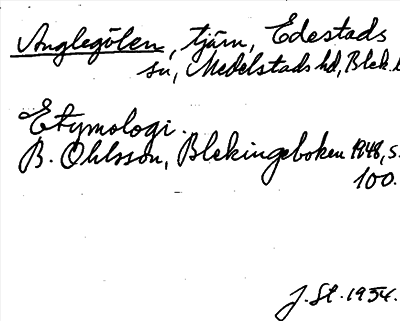 Anglegölen, tjärn, Edestads
sn, Medelstads hd, Blek. l
Etymologi.
B. Ohlsson, Blekingeboken 1948, s.
100.
J. St. 1954.